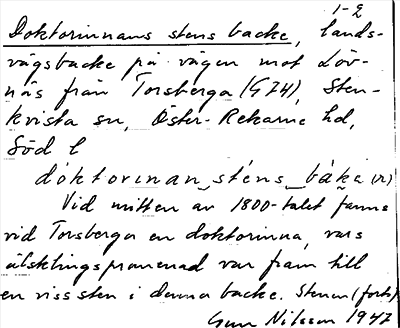 1-2
Doktorinnans stens backe, lands-
vägsbacke på vägen mot Löv-
näs från Torsberga (G74), Sten-
kvista sn, Öster-Rekarne hd,
Söd l
dòktorinan_sténs_bàka (n)
Vid mitten av 1800-talet fanns
vid Torsberga en doktorinna, vars
älsklingspromenad var fram till
en viss sten i denna backe. Stenen (forts)
Gun Nilsson 1947